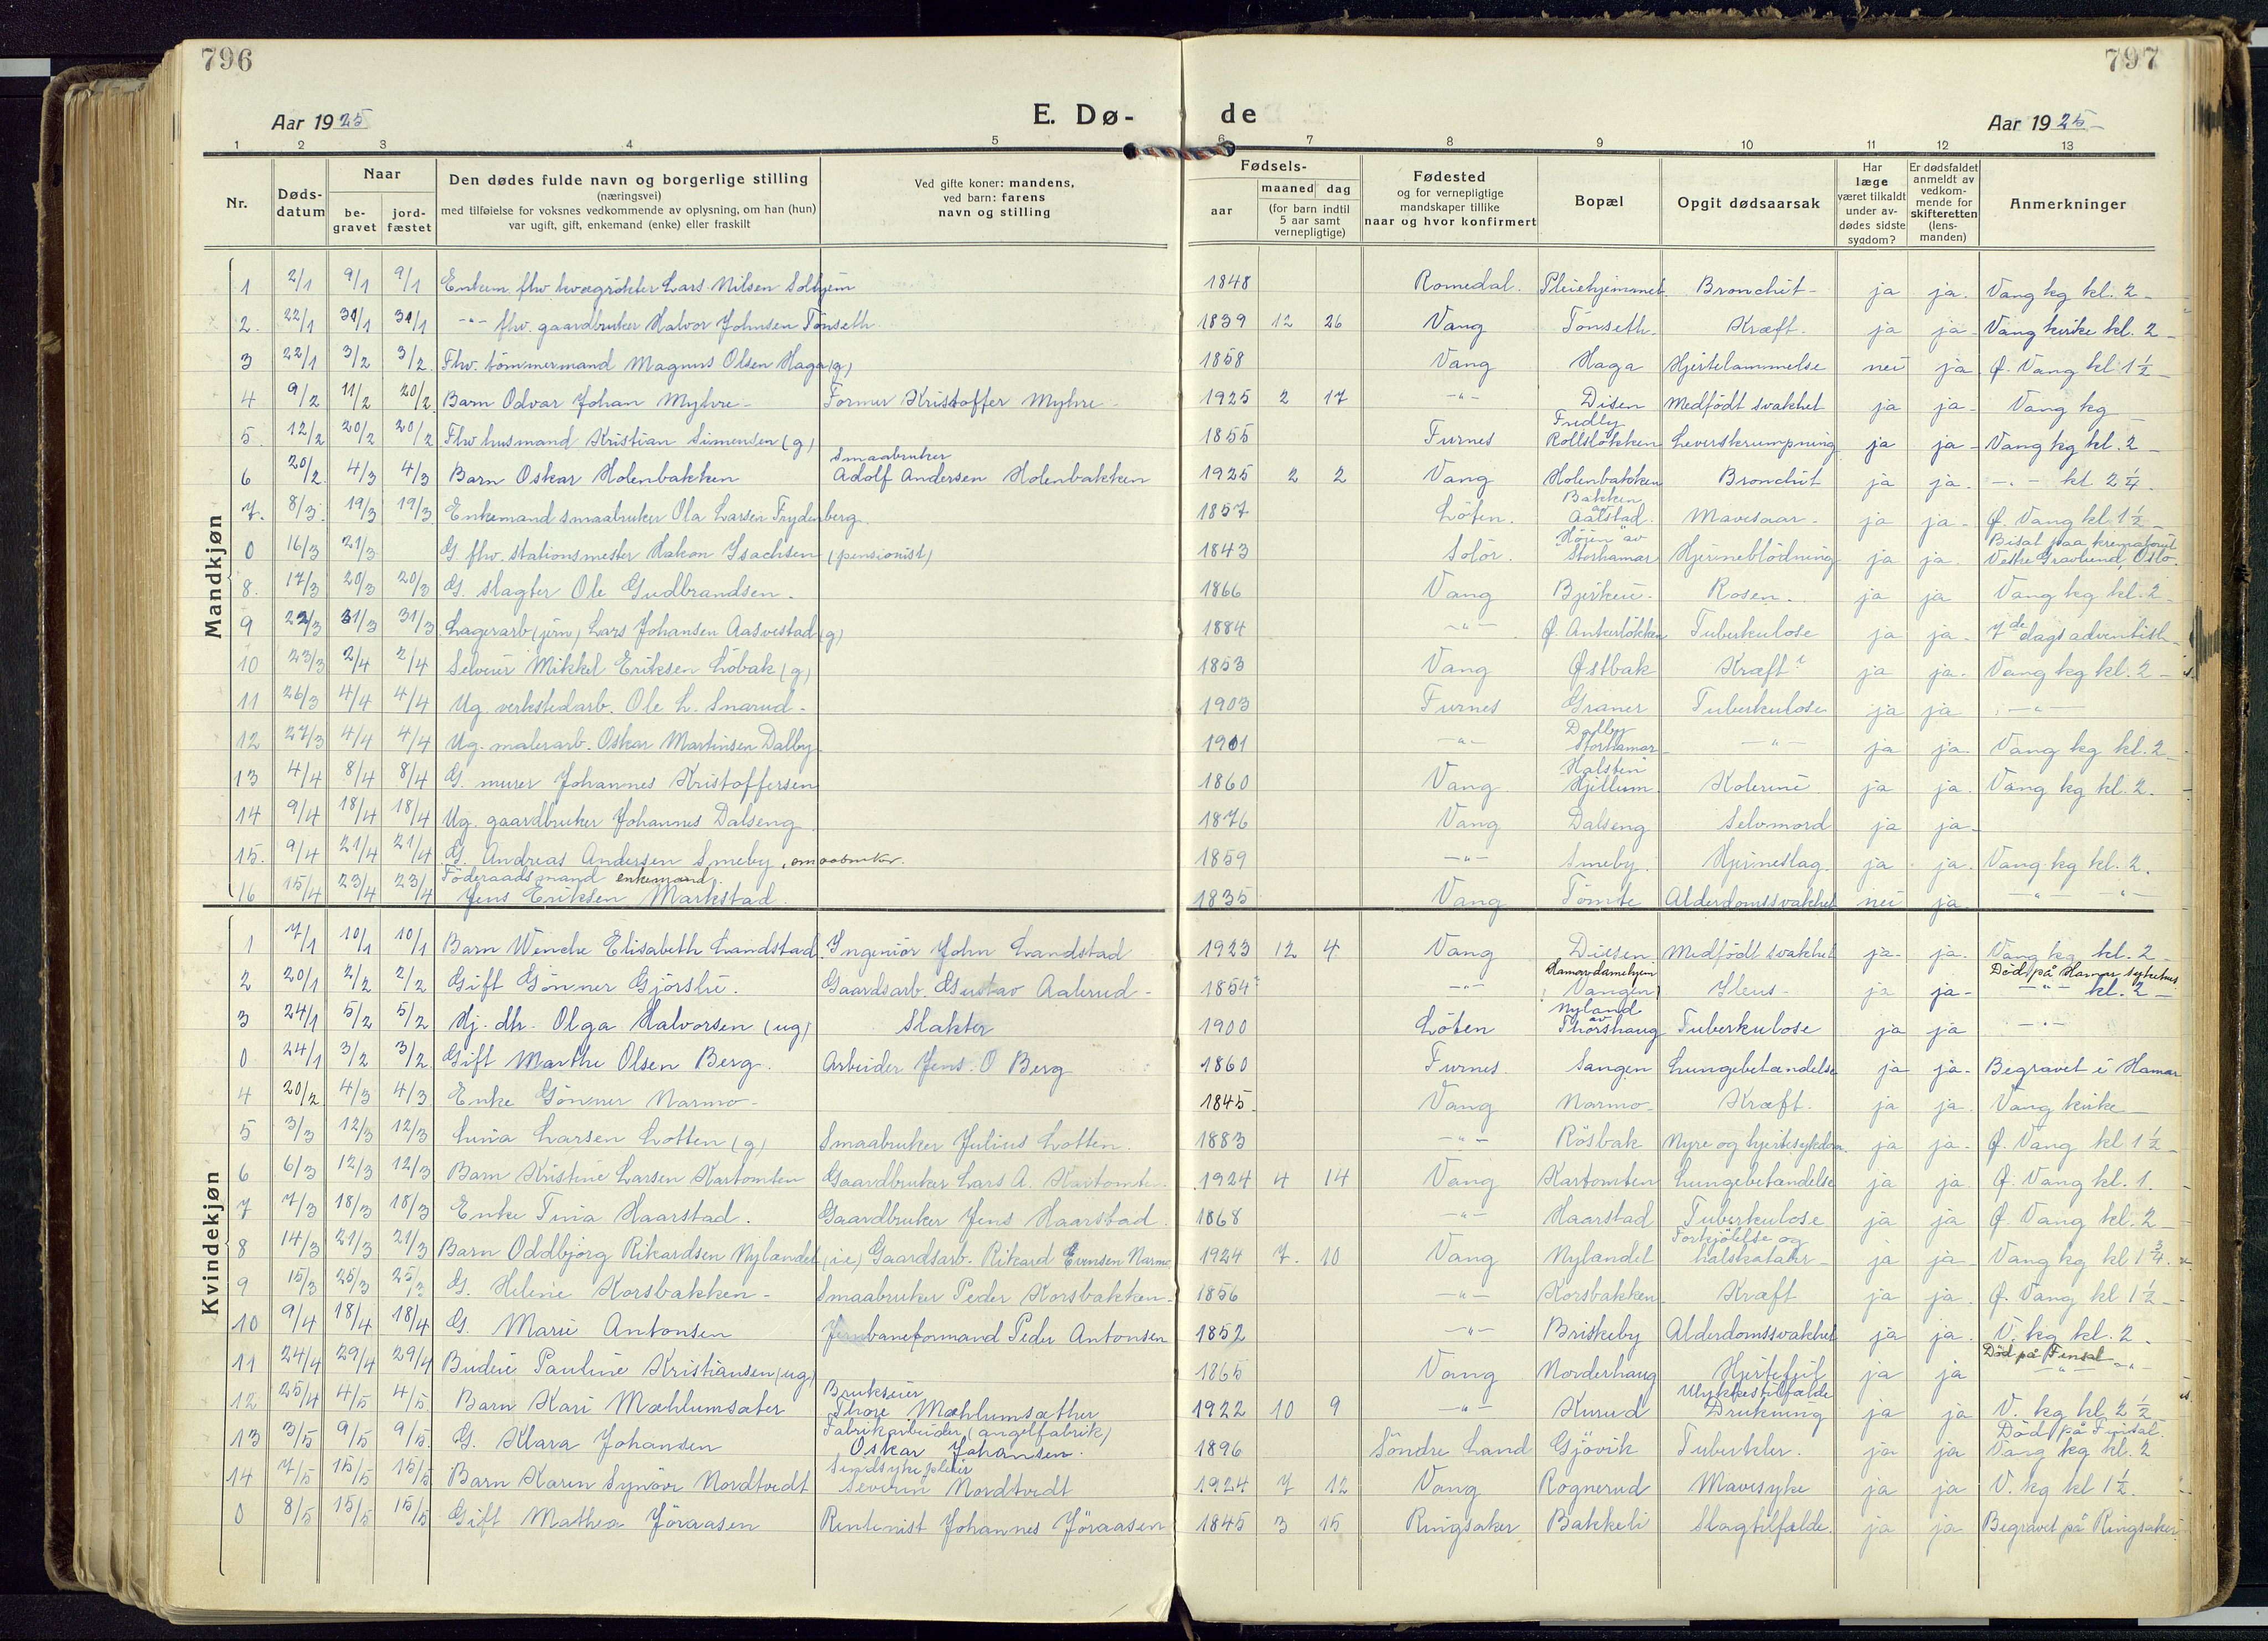 796
797
Aar 1925
E. Dø-
de
Aar 1925
1 2 3 4 5 6 7 8 9 10 11 12 13
Nr.
Døds-
datum
Naar
be-
gravet
jord-
fæstet
Den dødes fulde navn og borgerlige stilling
(næringsvei)
med tilføielse for voksnes vedkommende av oplysning, om han (hun)
var ugift, gift, enkemand (enke) eller fraskilt
Ved gifte koner: mandens,
ved barn: farens
navn og stilling
Fødsels-
aar
maaned dag
(for barn indtil
5 aar samt
vernepligtige)
Fødested
og for vernepligtige
mandskaper tillike
naar og hvor konfirmert
Bopæl
Opgit dødsaarsak
Har
læge
været tilkaldt
under av-
dødes sidste
sygdom?
Er dødsfaldet
anmeldt av
vedkom-
mende for
skifteretten
(lens-
manden)
Anmerkninger
Mandkjøn
1 2/1 9/1 9/1 Enkem. fhv kvægrøkter Lars Nilsen Solhjem 1848 Romedal. Pleiehjemmet. Bronchit- ja ja. Vang kg kl. 2-
2. 22/1 31/1 31/1 -"- fhv. gaardbruker Halvor Johnsen Tönseth 1839 12 26 Vang Tönseth. Kræft. ja ja- Vang kirke kl. 2-
3 22/1 3/2 3/2. Fhv. tömmermand Magnus Olsen Haga (g) 1858 Vang Haga Hjertelammelse nei ja Ø. Vang kl 1 1/2-
4 9/2 11/2 20/2. Barn Odvar Johan Myhre- Former Kristoffer Myhre- 1925 2 17 -"- Disen Medfödt svakhet ja ja- Vang kg-
5. 12/2 20/2 20/2 Fhv husmand Kristian Simensen (g) 1855 Furnes Fredly Rollsløkken Leverskrumpning ja ja- Vang kg kl. 2-
6 20/2 4/3 4/3 Barn Oskar Holenbakken Smaabruker Adolf Andersen Holenbakken 1925 2 2 Vang Holenbakken Bronchit ja ja. -"- kl 2 1/4.
7. 8/3 19/3 19/3 Enkemand smaabruker Ola Larsen Frydenberg. 1857 Löten. Bakken av Aalstad. Mavesaar- ja ja- Ø. Vang kl. 1 1/2-
0 16/3 21/3 G. fhv. stationsmester Hakon Isachsen (pensionist) 1843 Solör. "Höien" av Storhamar Hjerneblödning ja ja. Bisat paa krematoriet Vestre Gravlund, Oslo.
8. 17/3 20/3 20/3 G. slagter Ole Gudbrandsen. 1866 Vang Bjerkeii- Rosen- ja ja Vang kg. kl. 2-
9 22/3 31/3 31/3 Lagerarb (jern) Lars Johansen Aasvestad (g) 1884 -"- Ø. Ankerlökken Tuberkulose ja ja- 7de dags adventist-
10 23/3 2/4 2/4 Selveier Mikkel Eriksen Löbak (g) 1853 Vang Østbak Kræft? ja ja- Vang kg kl. 2-
11 26/3 4/4 4/4 Ug. verkstedarb. Ole L. Snarud- 1903 Furnes Graner Tuberkulose ja ja -"-
12 27/3 4/4 4/4 Ug. malerarb. Oskar Martinsen Dalby 1901 -"- Dalby Storhamar- -"- ja ja. Vang kg kl. 2-
13 4/4 8/4 8/4 G. murer Johannes Kristoffersen 1860 Vang Halsten Hjellum. Kolerine ja ja. Vang kg kl. 2.
14 9/4 18/4 18/4 Ug. gaardbruker Johannes Dalseng 1876 Vang Dalseng Selvmord ja ja-
15. 9/4 21/4 21/4 G. Andreas Andersen Smeby, smaabruker. 1859 -"- Smeby. Hjerneslag. ja ja. Vang kg kl. 2.
16 15/4 23/4 23/4 Föderaadsmand enkemand. Jens Eriksen Markestad. 1835 Vang Tömte Alderdomssvakhet nei ja -"- -"-
Kvindekjøn
1 7/1 10/1 10/1 Barn Wenche Elisabeth Landstad. Ingeniör John Landstad 1923 12 4 Vang Diesen. Medfödt svakhet ja- ja. Vang kg kl. 2-
2 20/1 2/2 2/2 Gift Gönner Gjörsli. Gaardsarb. Gustav Aakrud- 1854? -"- Hamar damehjem (Vangen) Ileus- ja ja- Död på Hamar sykehus. -"- kl. 2-
3 24/1 5/2 5/2 Hj. dh. Olga Halvorsen (ug) Slakter 1900 Löten Nyland av Thorshaug Tuberkulose ja ja -"-
0 24/1 3/2 3/2. Gift Marthe Olsen Berg. Arbeider Jens O Berg 1860 Furnes. Sangen Lungebetændelse ja ja- Begravet i Hamar
4 20/2 4/3 4/3 Enke Gönner Narmo- 1845. Vang Narmo- Kræft. ja ja. Vang kirke-
5 3/3 12/3 12/3 Lina Larsen Lotten (g) Smaabruker Julius Lotten. 1883 -"- Rösbak Nyre og hjertesykdom. ja ja- Ø. Vang kl 1 1/2-
6 6/3 12/3 12/3 Barn Kristine Larsen Kartomten Gaardbruker Lars A. Kartomten. 1924 4 14 Vang Kartomten Lungebetændelse ja ja. Ø. Vang kl. 1.
7 7/3 18/3 18/3 Enke Tina Haarstad. Gaardbruker Jens Haarstad. 1868 -"- Haarstad Tuberkulose ja ja Ø. Vang kl. 2-
8 14/3 21/3 21/3 Barn Oddbjörg Rikardsen Nylandet (i.e) Gaardsarb. Rikard Evensen Narmo 1924 7. 10 Vang Nylandet Forkjölelse og halskatarr- ja ja- Vang kg kl 1 3/4.
9 15/3 25/3 25/3 G. Helene Korsbakken- Smaabruker Peder Korsbakken- 1856 -"- Korsbakken- Kræft ja ja. Ø. Vang kl 1 1/2-
10 9/4 18/4 18/4 G. Marie Antonsen Jernbaneformand Peder Antonsen 1852 -"- Briskeby Alderdomssvakhet ja ja. V. kg kl. 2.
11 24/4 29/4 29/4 Budeie Pauline Kristiansen (ug) 1865 Vang Norderhaug Hjertefeil ja ja Död på Finsal -"- -"-
12 25/4 4/5 4/5. Barn Kari Mæhlumsæter Brukseier Thore Mæhlumsæther 1922 10 9 -"- Kurud Ulykkestilfælde Drukning ja ja V. kg kl. 2 1/2
13 3/5 9/5 9/5. G. Klara Johansen Fabrikarbeider (angelfabrik) Oskar Johansen. 1896 Söndre Land Gjövik Tuberkler. ja ja Död på Finsal. Vang kg kl. 2
14 7/5 15/5 15/5 Barn Karen Synöve Nordtvedt Sindsykepleier Severin Nordtvedt 1924 7 12 Vang Rognerud Mavesyke ja ja V. kg kl 1 1/2.
0 8/5 15/5 15/5 Gift Mathea Jöraasen Rentenist Johannes Jöraasen 1845 3 15 Ringsaker Bakkeli Slagtilfælde. ja ja Begravet på Ringsaker